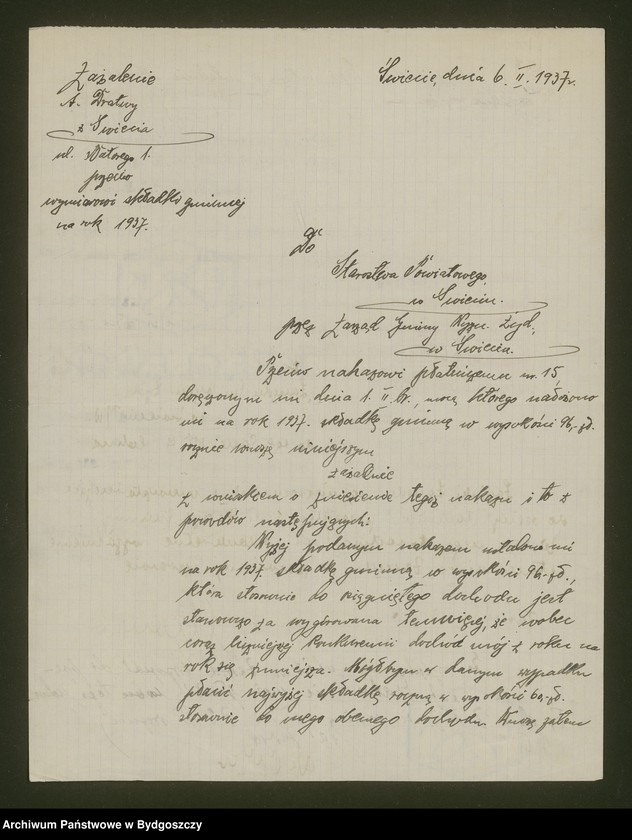 Zażalenie
A. Dratwy
z Świecia
ul. Batorego 1.
przeciw
wymiarowi składki gminnej
na rok 1937.
Świecie, dnia 6. II. 1937 r.
Do
Starostwa Powiatowego,
w Świeciu.
przez Zarząd Gminy Wyzn. Żyd.,
w Świeciu.
Przeciw nakazowi płatniczemu nr. 15,
doręczonym mi dnia 1. II. br., mocą którego nałożono
mi na rok 1937. składkę gminną w wysokości 96,- zł.
rocznie wnoszę niniejszym
zażalenie
z wnioskiem o zniesienie tegoż nakazu i to z
powodów następujących:
Wyżej podanym nakazem ustalono mi
na rok 1937. składkę gminną w wysokości 96,- zł.,
która stosownie do osiągniętego dochodu jest
stanowczo za wygórowana temwięcej, że wobec
coraz liczniejszej konkurencji dochód mój z roku na
rok się zmniejsza. Mógłbym w danym wypadku
płacić najwyżej składkę roczną w wysokości 60,- zł.
stosownie do mego obecnego dochodu. Wnoszę zatem
Archiwum Państwowe w Bydgoszczy